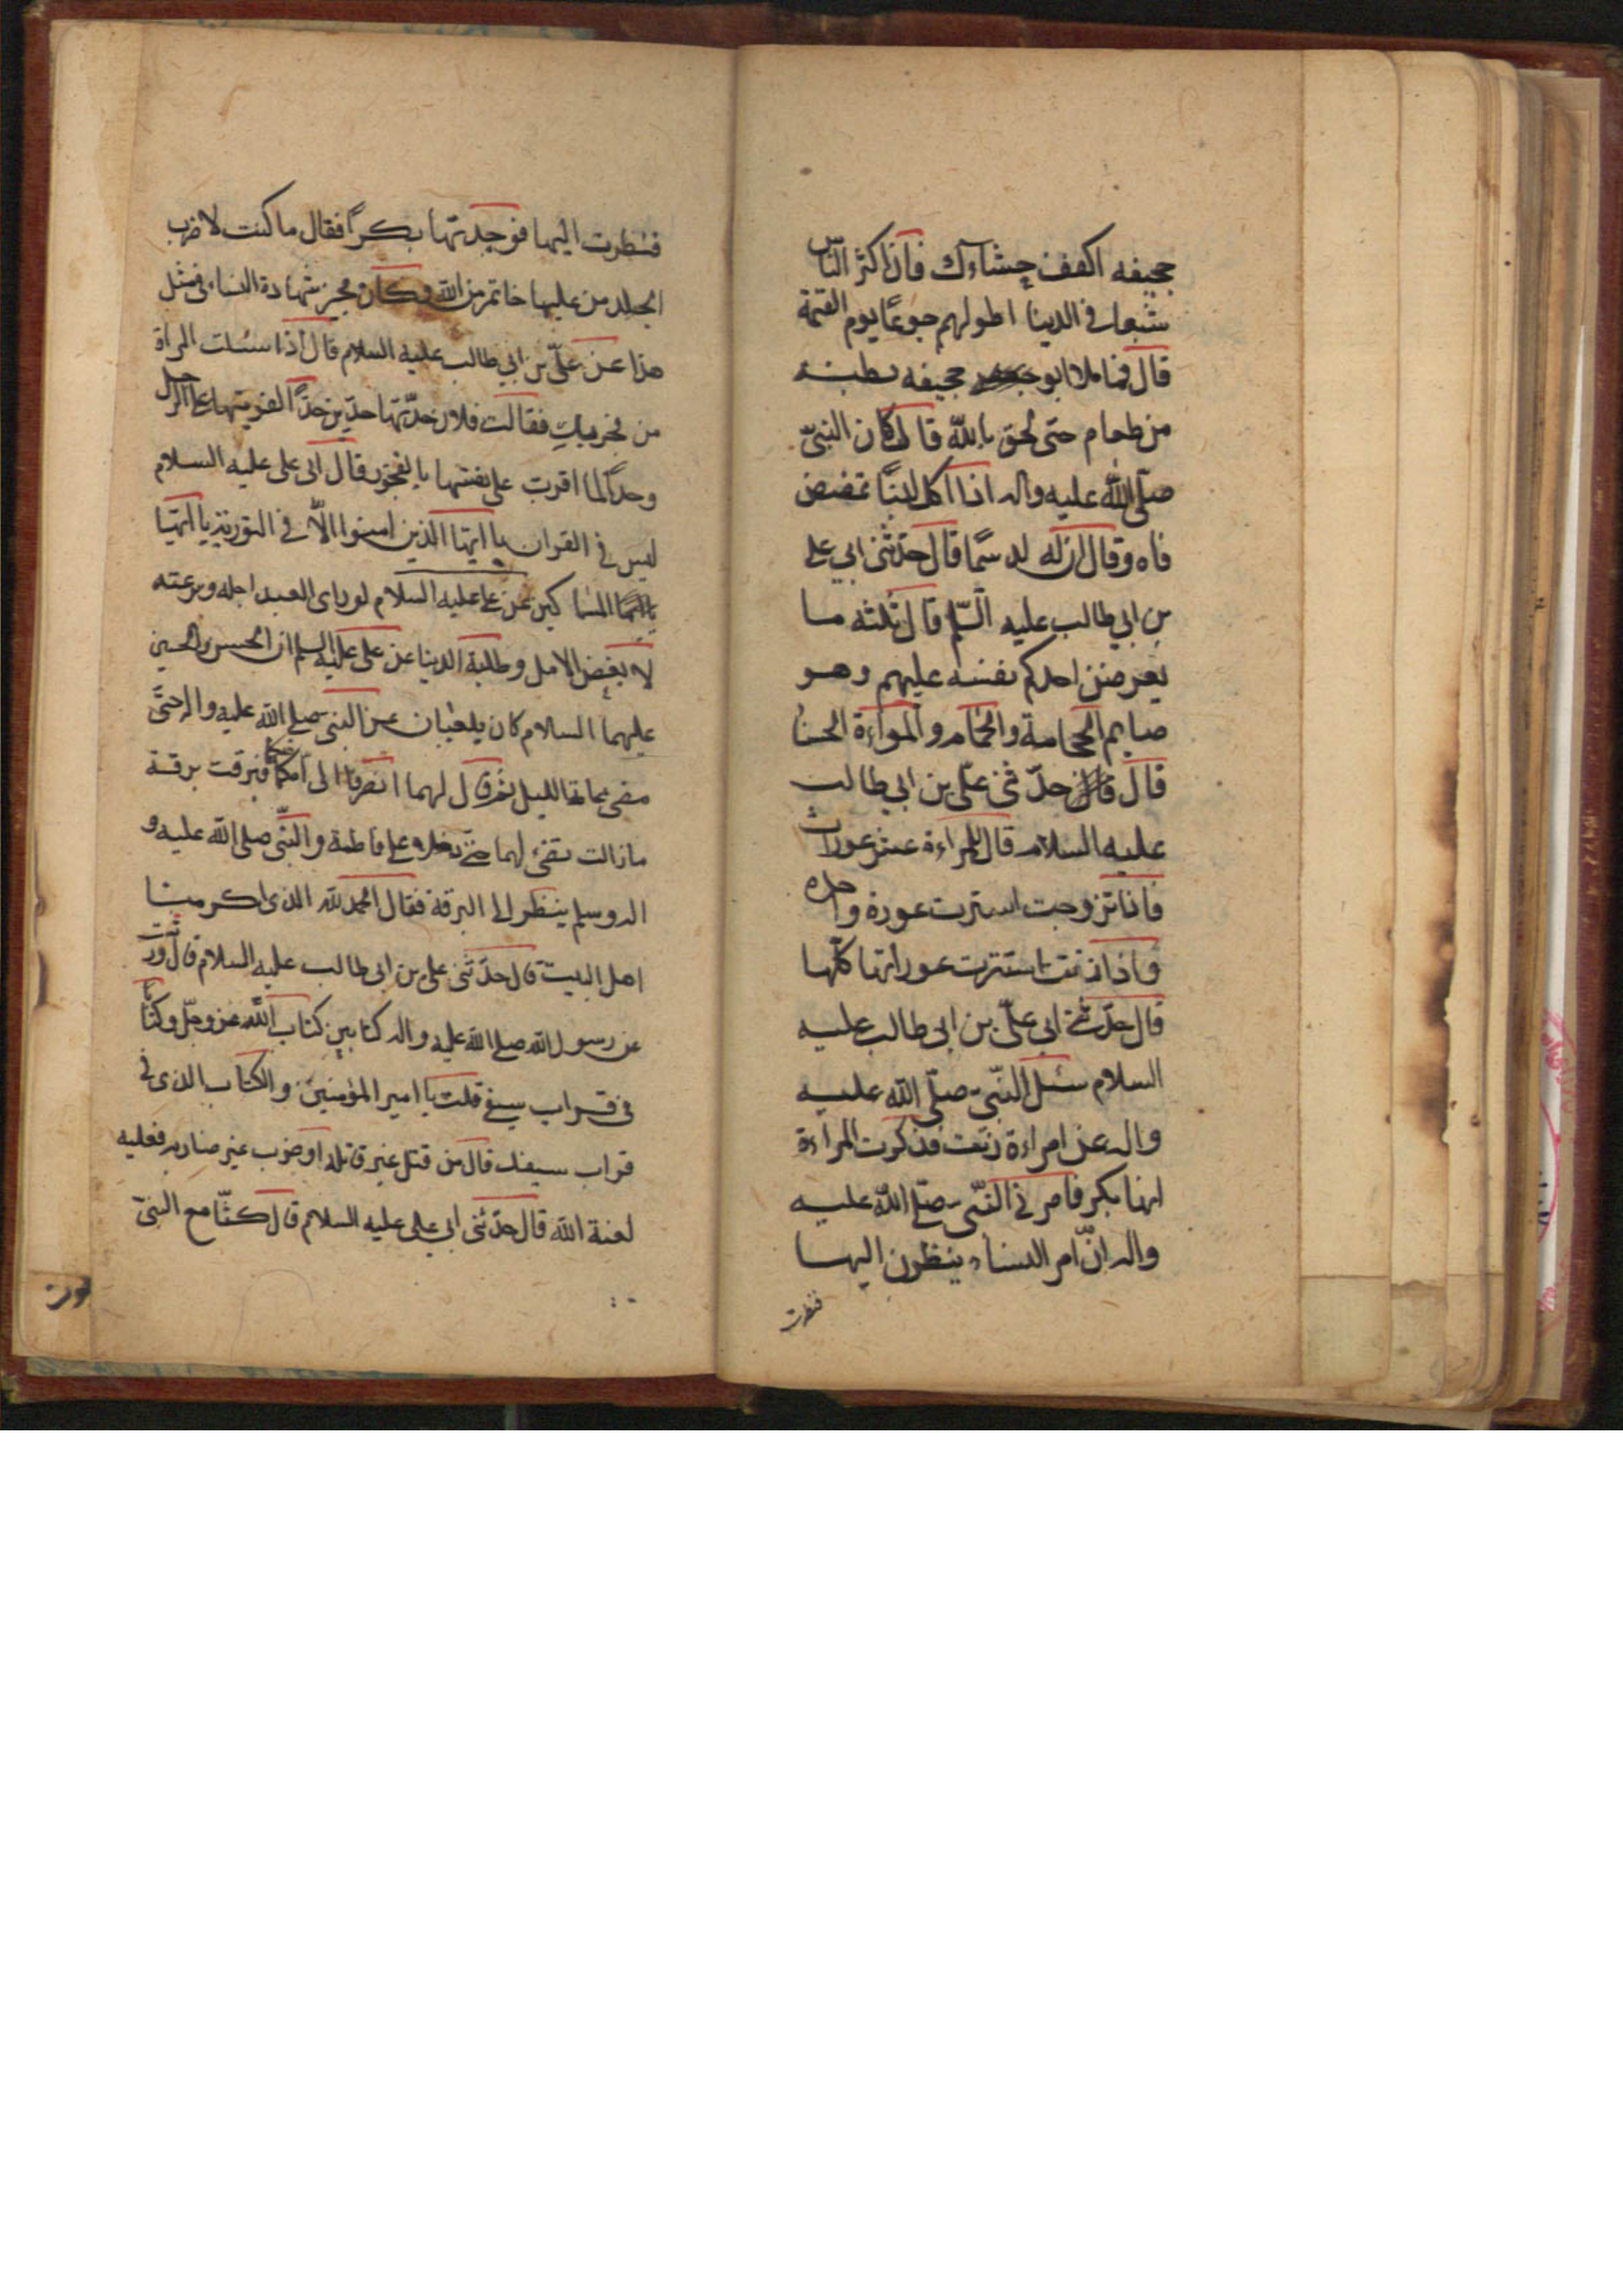 جحيفه اكفف جشاءك فان اكثر الناس
شبعا فى الدينا اطولهم جوعًا يوم القيمة
قال فما ملا ابو جحيفه بطنه
من طعام حتى لحق بالله قال كان النبىّ
صلّى الله عليه واله اذا اكل لبنًا تمضمض
فاه وقال ان له لدسمًا قال حدّثنى ابى على
بن ابى طالب عليه السّلم قال ثلثه لا
يعرضنّ احدكم نفسه عليهم وهو
صايم الحجامة والحمّام والمراءة الحسنا
قال حدّثنى علىّ بن ابى طالب
عليه السلام قال للمراءة عشر عورات
فاذا تزوجت استترت عورة واحدة
واذا ماتت استترت عوراتها كلّها
قال حدّثنى ابى علىّ بن ابى طالب عليه
السلام سئل النّبىّ صلّى الله عليه
واله عن امراءة زنت فذكرت المراءة
انها بكر فامرنى النّبى صلّى الله عليه
واله ان آمر النساء ينظرن اليها
فنظرت
فنظرت اليها فوجدتها بكرًا فقال ما كنت لاضرب
الجلد من عليها خاتم من الله وكان يجيز شهادة النساء فى مثل
هذا عن علىّ بن ابى طالب عليه السلام قال اذا سئلت المراة
من فجر بكِ فقالت فلان حدّتها حدّين حدًّا لفريتها على الرجل
وحدًّا لما اقرت على نفسها بالفجور قال ابى على عليه السلام
ليس فى القران يا ايّها الذين امنوا الاّ فى التورية يا ايّها
يا ايّها المساكين عن على عليه السلام لو راى العبد اجله وسرعته
لابغض الامل وطلبة الدينا عن على عليه السلم ان الحسن والحسين
عليهما السلام كان يلعبان عن النبى صلى الله عليه واله حتّى
مضى عامة الليل ثم قال لهما انصرفا الى امكما فبرقت برقة
ما زالت تضئ لهما حتى دخلا على فاطمة والنبّى صلى الله عليه و
اله وسلم ينظر الى البرقة فقال الحمد لله الذى اكرمنا
اهل البيت قال حدّثنى على بن ابى طالب عليه السلام قال ورثت
عن رسول الله صلى الله عليه واله كتابين كتاب الله عز وجلّ وكتابًا
فى قراب سيفى قلت يا امير المؤمنين والكتاب الذى فى
قراب سيفك قال من قتل غير قاتله او ضرب غير ضاربه فعليه
لعنة الله قال حدّثنى ابى على عليه السلام قال كنّا مع النبىّ